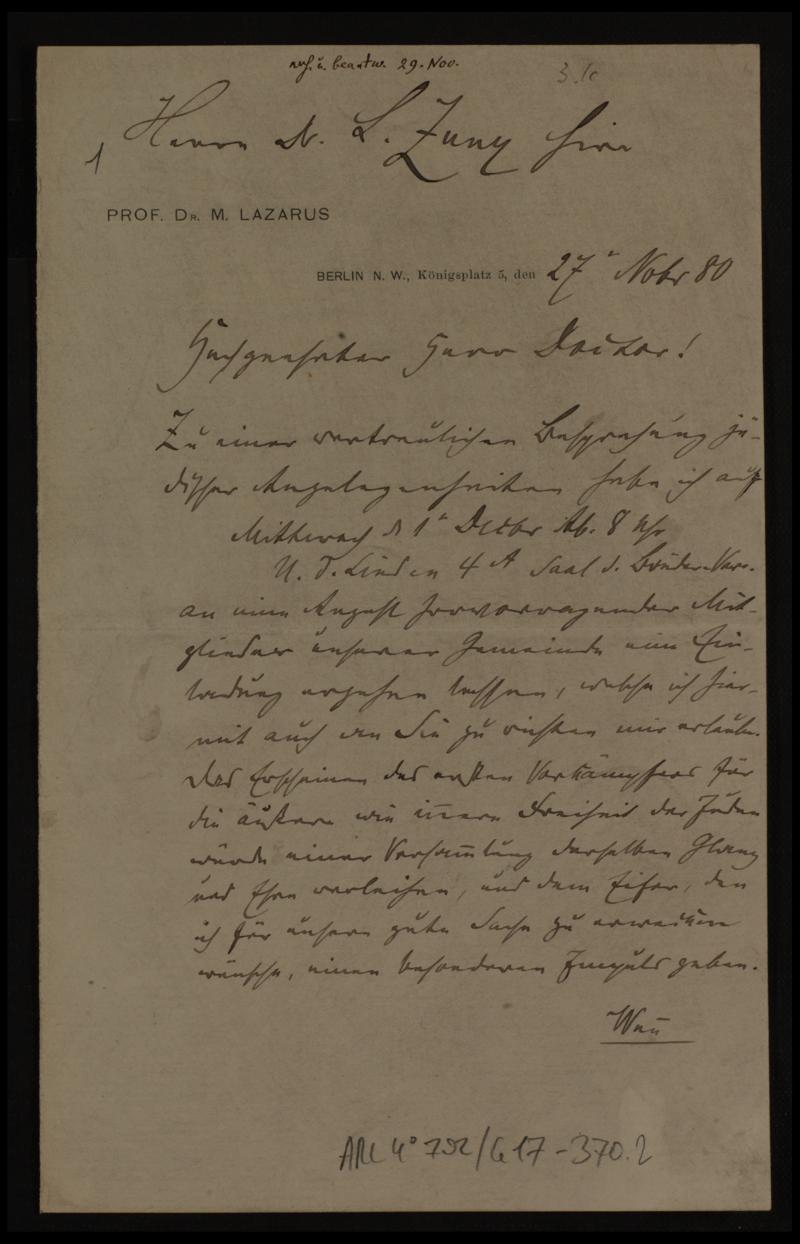 u. beantw. 29. Nov.
3.1c
Herrn Dr. L. Zunz hier
1
PROF. DR. M. LAZARUS
BERLIN N. W., Königsplatz 5, den 27t Nobr 80
Hochgeehrter Herr Doctor!
Zu einer vertraulichen Besprechung jü-
discher Angelegenheiten habe ich auf
Mittwoch d 1t Decbr Ab. 8 Uhr
U. d. Linden 4A Saal d. Brüder-Vere.
an eine Anzahl hervorragender Mit-
glieder unserer Gemeinde eine Ein-
ladung ergehen lassen, welche ich hier-
mit auch an Sie zu richten mir erlaube.
Das Erscheinen des ersten Vorkämpfers für
die äußere wie in̅ere Freiheit der Juden
würde einer Versam̅lung derselben Glanz
und Ehre verleihen, und dem Eifer, den
ich für unsere gute Sache zu erwecken
wünsche, einen besonderen Impuls geben.
Wen̅
ARC 4° 792/G17-370.2